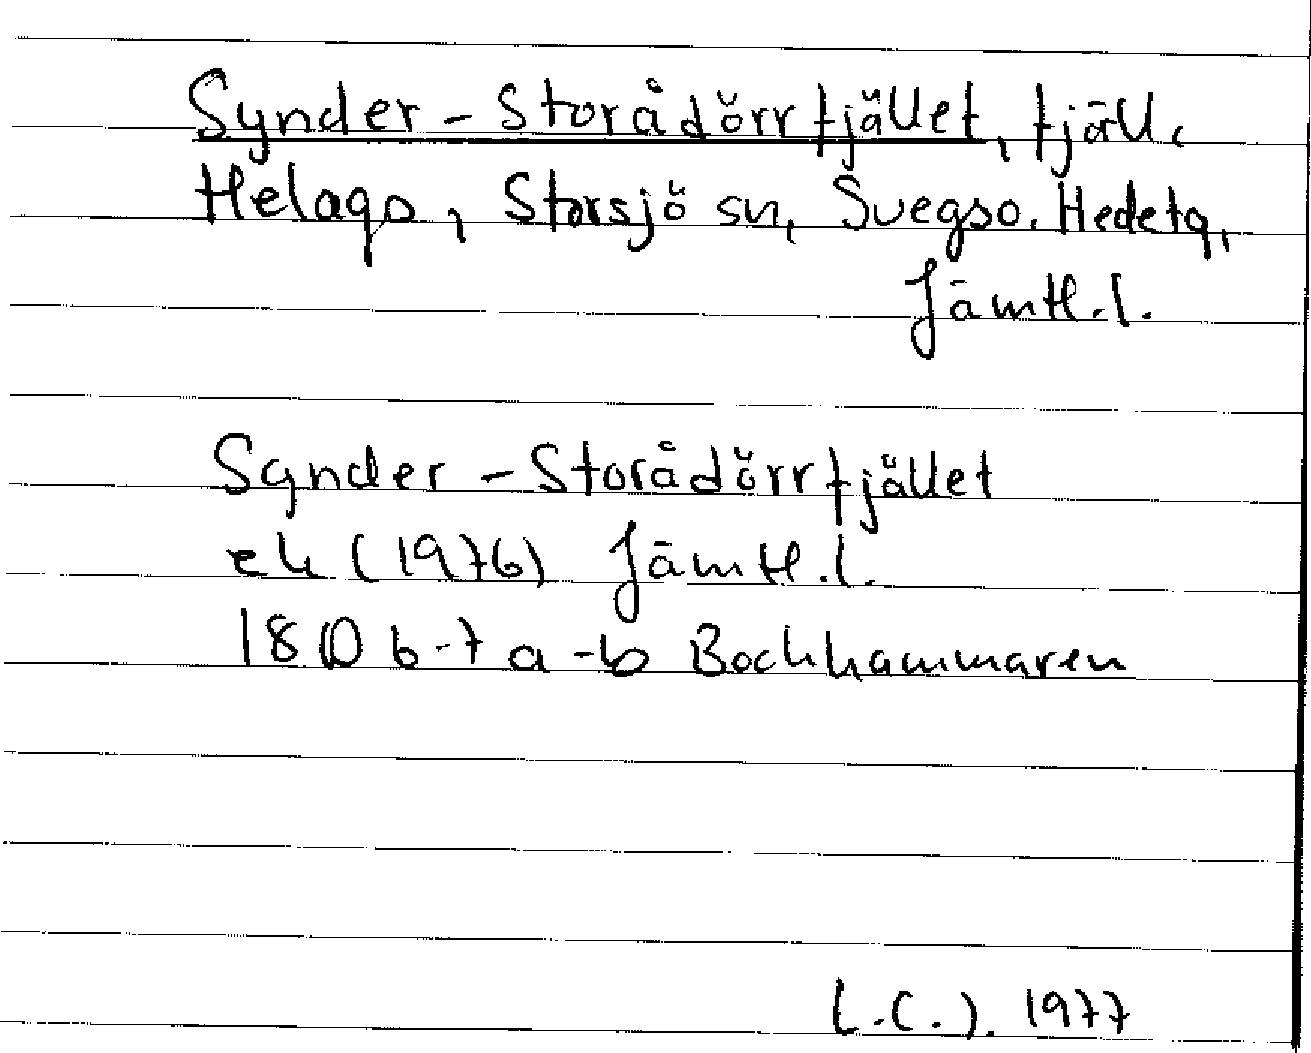 Synder-Storådörrfjället, fjäll,
Helags, Storsjö sn, Svegs o. Hede tg,
Jämtl. l.
Synder-Storådörrfjället
ek (1976) Jämtl. l.
18 D b-7 a-b Bockhammaren
L.C.J. 1977